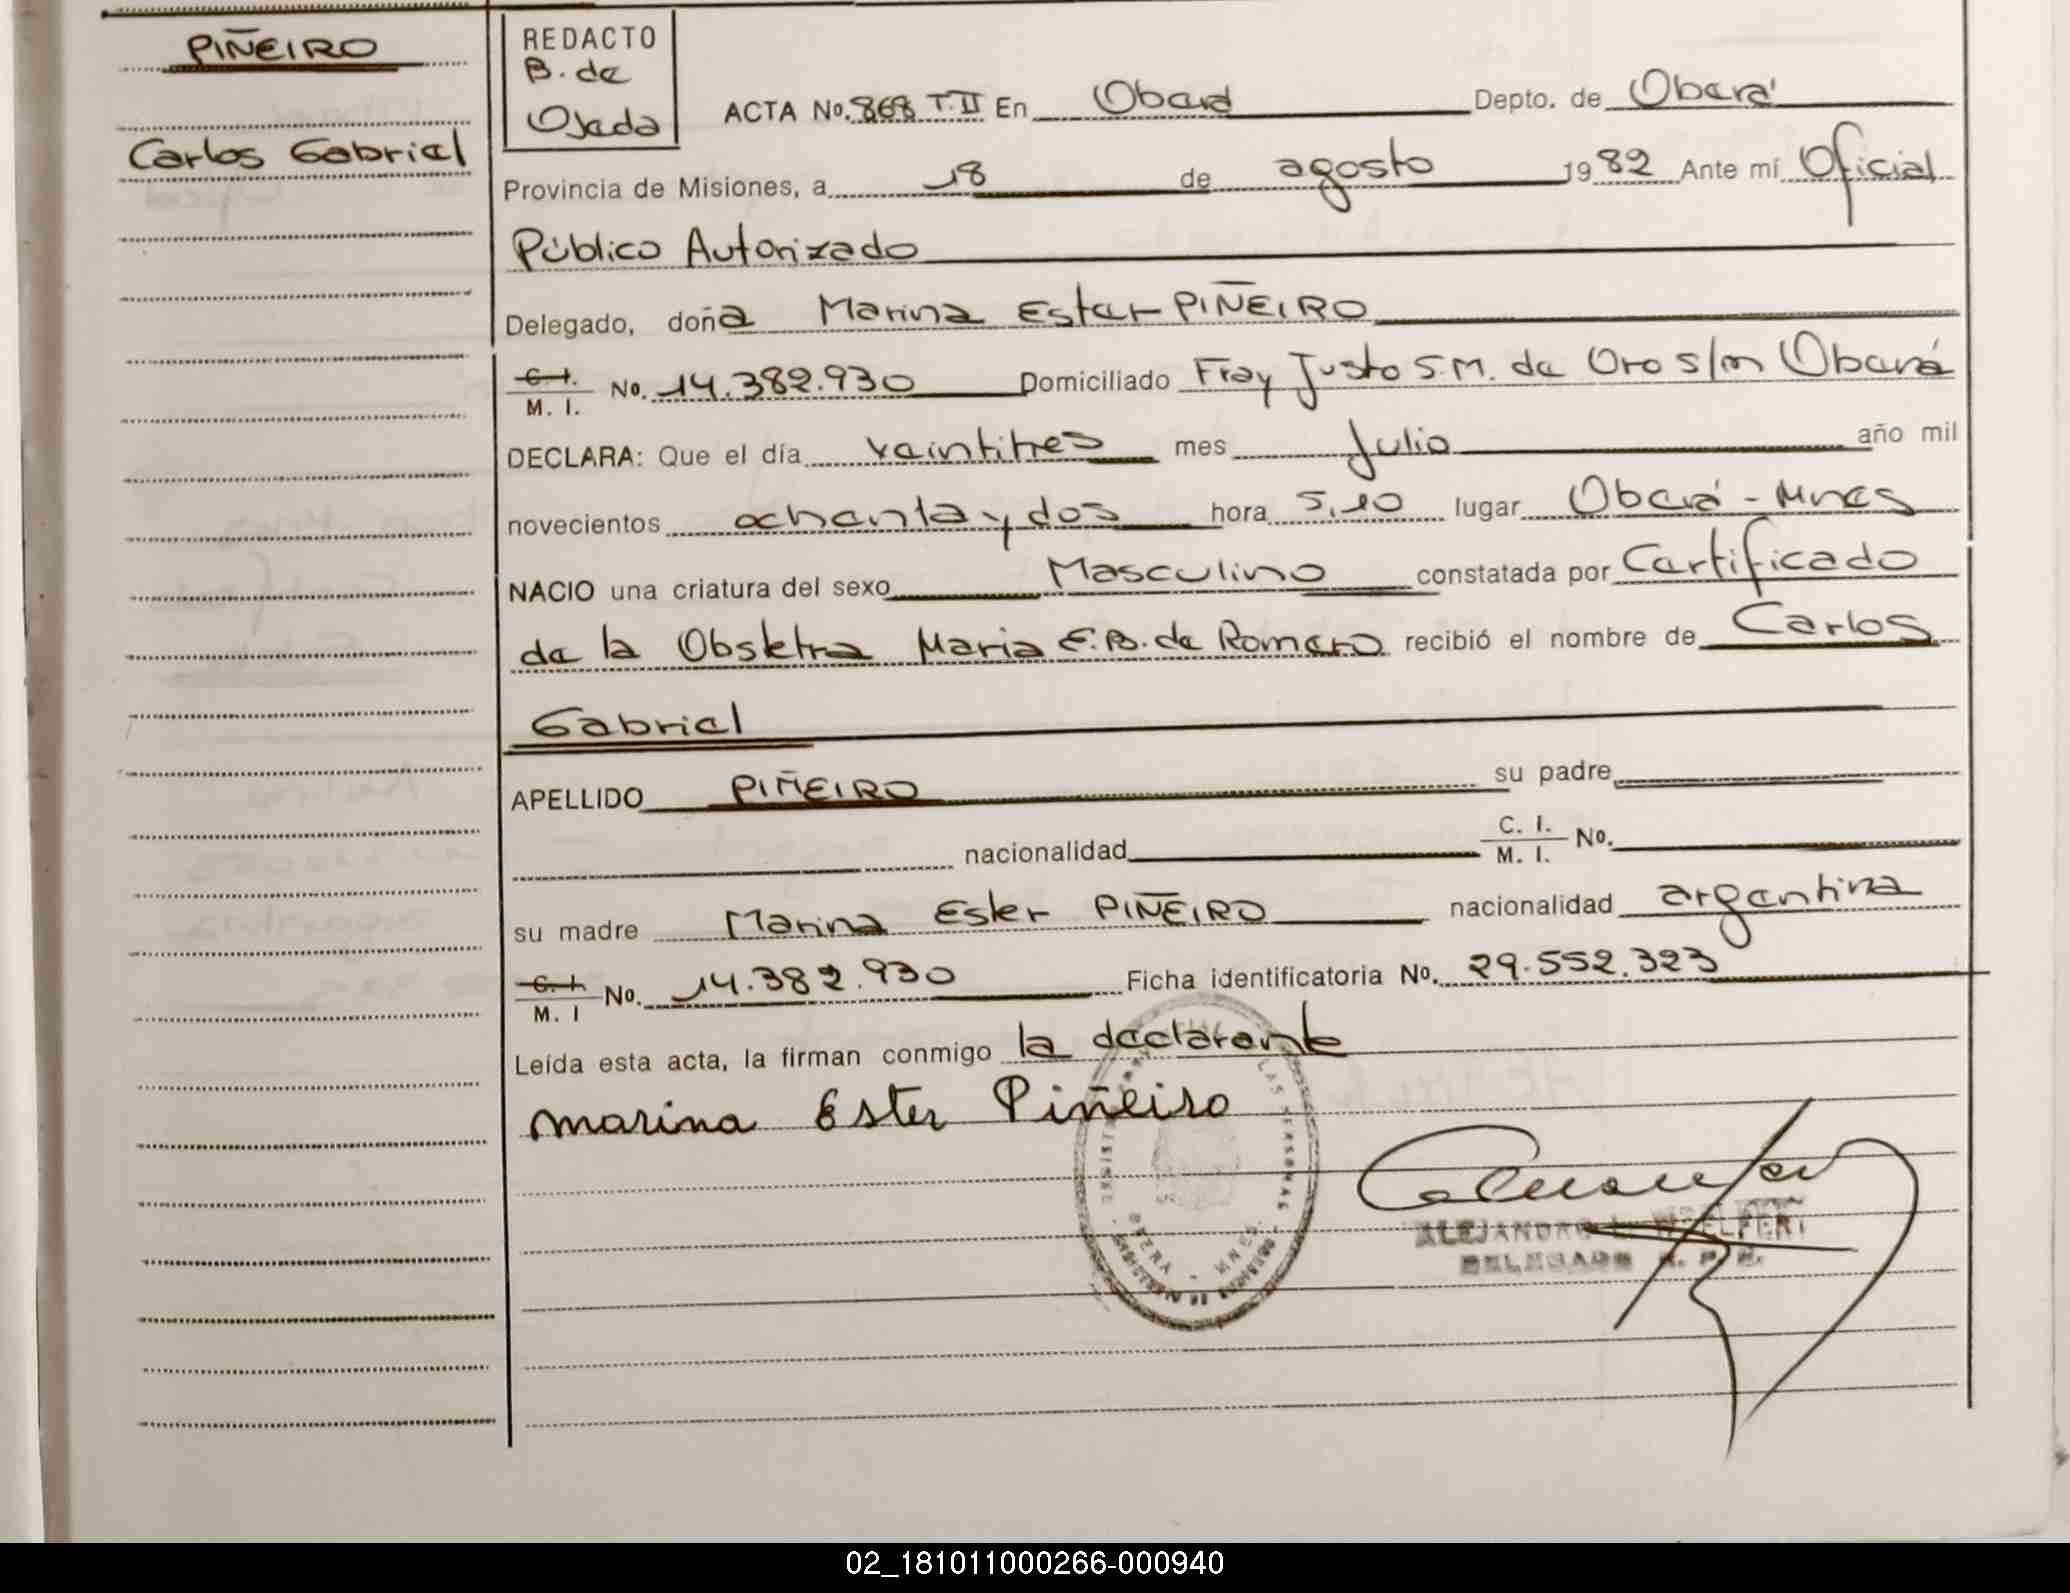 PIÑEIRO
Carlos Gabriel
REDACTO
B. de
Ojeda
ACTA No. 868 T.II En Oberá Depto. de Oberá
Provincia de Misiones, a 18 de agosto 1982 Ante mí Oficial
Público Autorizado
Delegado, doña Marina Ester PIÑEIRO
C. I.
M. I. No. 14.382.930 Domiciliado Fray Justo S.M. de Oro s/n Oberá
DECLARA: Que el día veintitres mes Julio año mil
novecientos ochenta y dos hora 5,10 lugar Oberá - Mnes
NACIO una criatura del sexo Masculino constatada por Certificado
de la Obstetra Maria E.B. de Romero recibió el nombre de Carlos
Gabriel
APELLIDO PIÑEIRO su padre
nacionalidad C. I.
M. I. No.
su madre Marina Ester PIÑEIRO nacionalidad argentina
C. I.
M. I No. 14.382.930 Ficha identificatoria No. 29.552.323
Leída esta acta, la firman conmigo la declarante
Marina Ester Piñeiro
LAS PERSONAS
OBERA - MNES
ALEJANDRO
DELEGADO R. P. P.
02_181011000266-000940